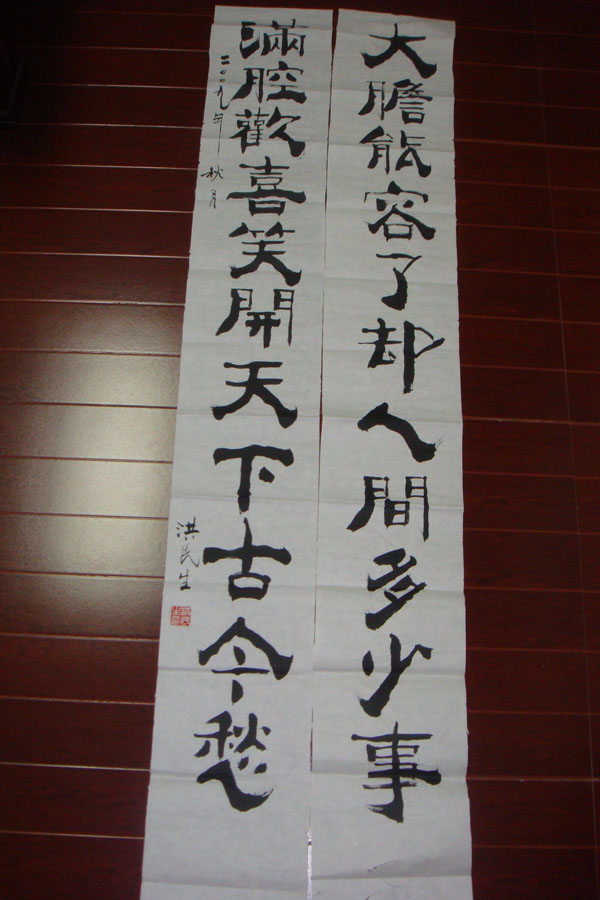 大膽能容了却人間多少事
滿腔歡喜笑開天下古今愁
二〇〇九年秋月
洪民生